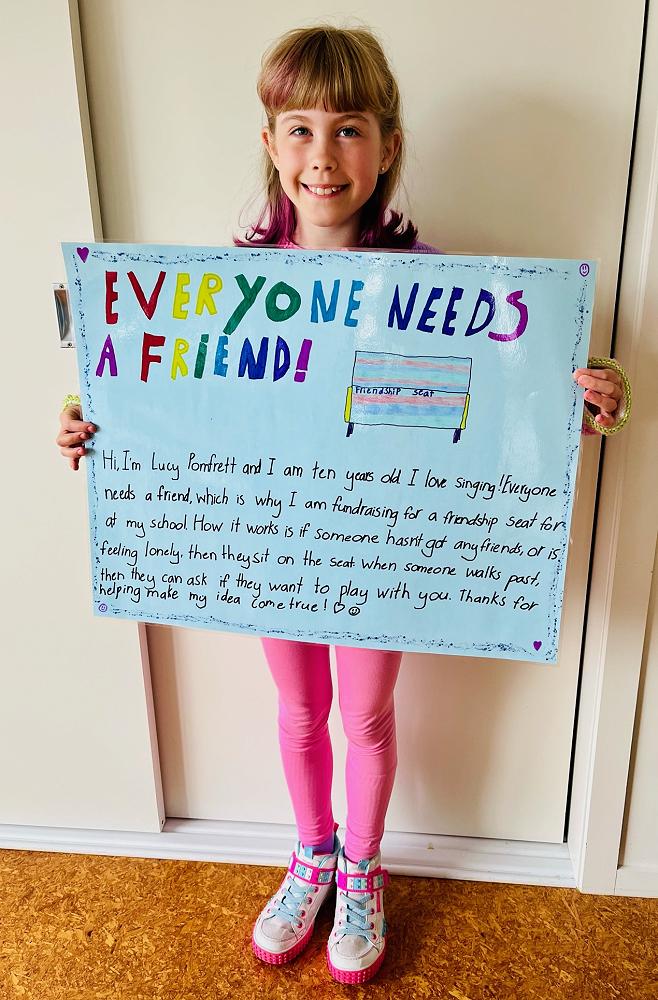 EVERYONE NEEDS
A FRiEND!
Friendship seat
Hi, I'm Lucy Pomfrett and I am ten years old I love singing! Everyone
needs a friend, which is why I am fundraising for a friendship seat for
at my school. How it works is if someone hasn't got any friends, or is
feeling lonely, then they sit on the seat when someone walks past,
then they can ask if they want to play with you. Thanks for
helping make my idea come true!